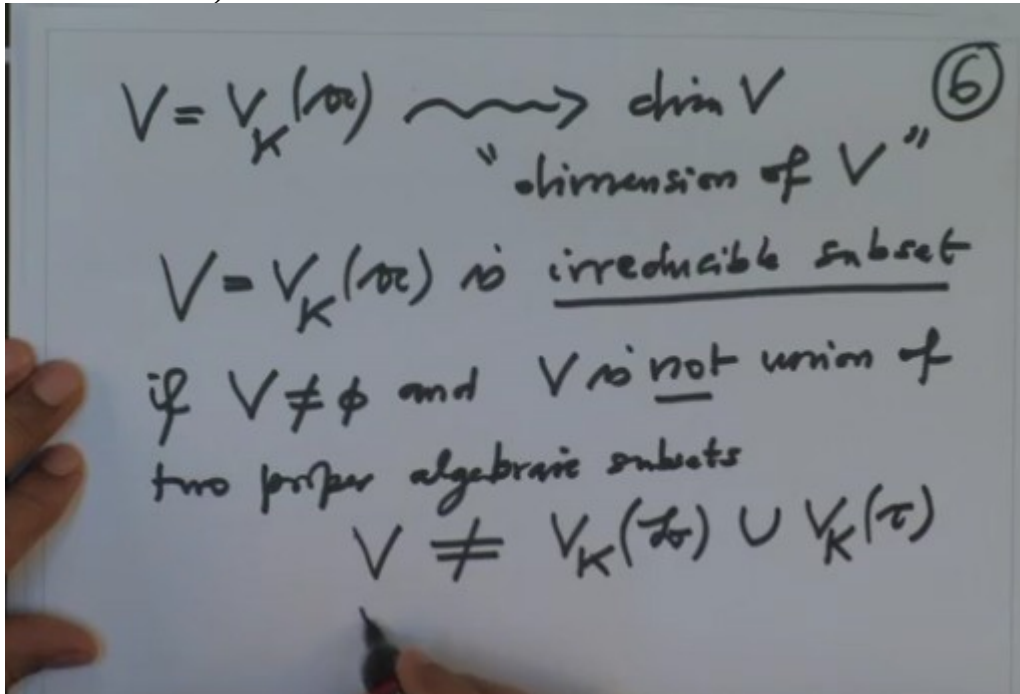 V = V_K(𝔞) ⟿ dim V ⑥
"dimension of V"
V = V_K(𝔞) is irreducible subset
if V ≠ ϕ and V is not union of
two proper algebraic subsets
V ≠ V_K(𝔟) ∪ V_K(τ)